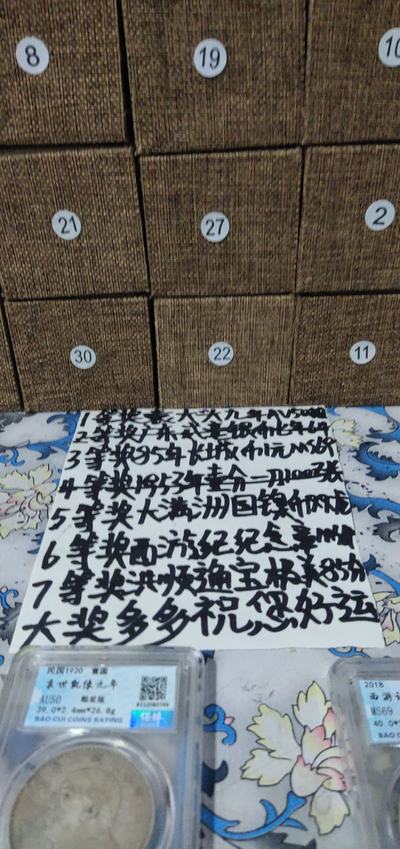 8
19
10
21
27
2
30
22
11
1等奖袁大头九年AU50
2等奖广东贰毫银币七年
3等奖85年长城币1元MS69
4等奖1953年壹分
5等奖大满洲国镍币
6等奖西游纪纪念章
7等奖洪顺通宝 85分
大奖多多祝您好运
民国1920 壹圆
袁世凯像九年
AU50
39.0*2.4mm*26.8g
BAO CUI COINS RATING
2018
西游记
MS69
40.0*
BAO CUI